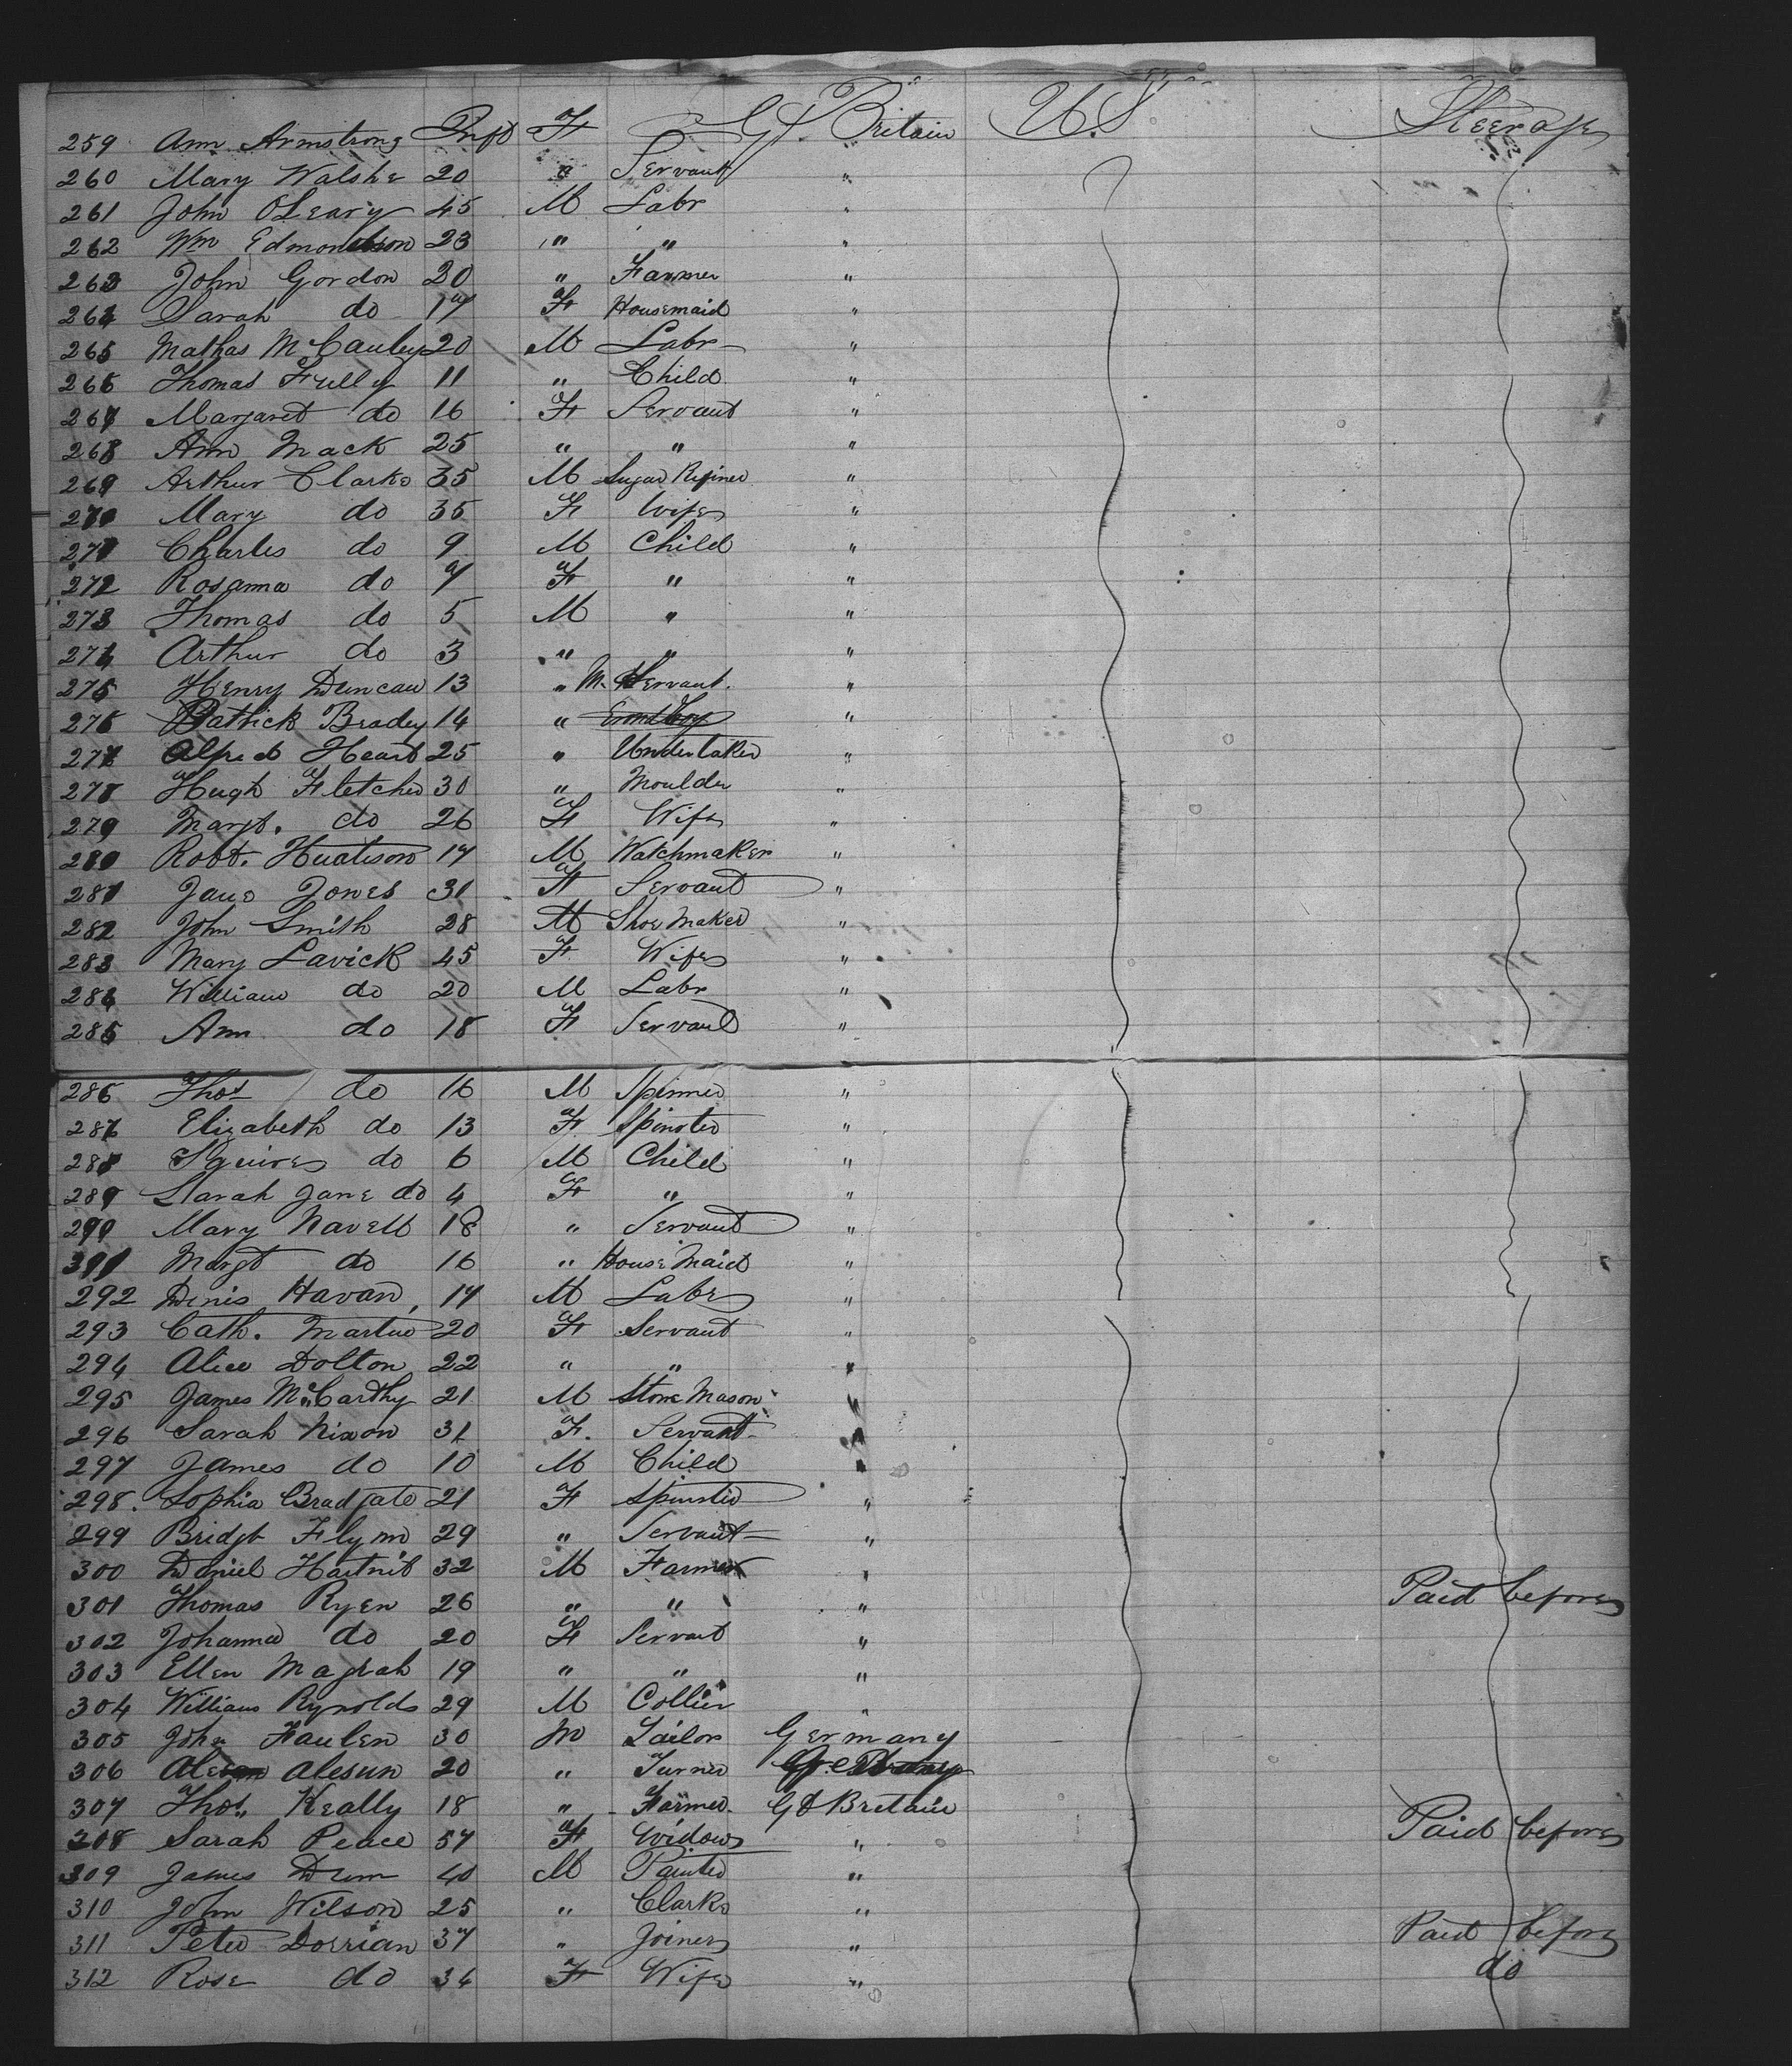 259 Ann Armstrong Inft F Gt. Britain U.S Steerage
260 Mary Walshe 20 " Servant "
261 John OLeary 45 M Labr "
262 Wm Edmondson 23 " " "
263 John Gordon 20 " Farmer "
264 Sarah do 17 F Housemaid "
265 Mathas McCauley 20 M Labr "
266 Thomas Fully 11 " Child "
267 Margaret do 16 F Servant "
268 Ann Mack 25 " " "
269 Arthur Clarke 35 M Sugar Refiner "
270 Mary do 35 F Wife "
271 Charles do 9 M Child "
272 Rosanna do 7 F " "
273 Thomas do 5 M " "
274 Arthur do 3 " " "
275 Henry Duncan 13 " M. Servant. "
276 Patrick Bradey 14 " Errand Boy "
277 Alfred Heard 25 " Undertaker "
278 Hugh Fletcher 30 " Moulder "
279 Margt. do 26 F Wife "
280 Robt. 17 M Watchmaker "
281 Jane Jones 31 F Servant "
282 John Smith 28 M Shoe Maker "
283 Mary Lavick 45 F Wife "
284 William do 20 M Labr "
285 Ann do 18 F Servant "
286 Thos do 16 M Spinner "
287 Elizabeth do 13 F Spinster "
288 Squires do 6 M Child "
289 Sarah Jane do 4 F " "
290 Mary Navell 18 " Servant "
391 Margt do 16 " House Maid "
292 Denis Havan, 17 M Labr "
293 Cath. Martin 20 F Servant "
294 Alice Dolton 22 " " "
295 James McCardhy 21 M Stone Mason "
296 Sarah Nixon 31 F. Servant "
297 James do 10 M Child "
298. Sophia Bradgate 21 F Spinster "
299 Bridgt Flynn 29 " Servant "
300 Daniel Hartnit 32 M Farmer "
301 Thomas Ryen 26 " " " Paid before
302 Johanna do 20 F Servant "
303 Ellen Magrah 19 " " "
304 William Rynolds 29 M Collier "
305 John Faulen 30 M Tailor Germany
306 Alesun 20 " Turner
307 Thos. Keally 18 " Farmer Gt Bretain
308 Sarah Peace 57 F Widow " Paid before
309 James Drum 40 M Painter "
310 John Wilson 25 " Clarke "
311 Peter Dorrian 37 " Joiner " Paid before
312 Rose do 34 F Wife " do